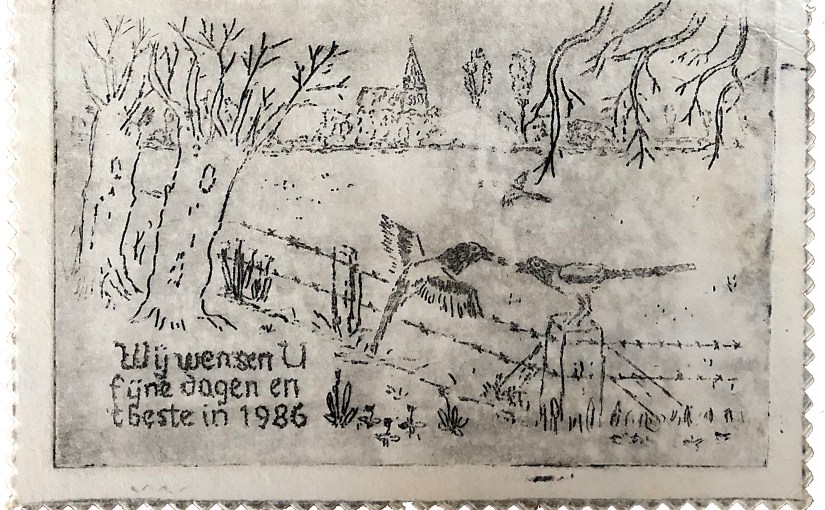 Wij wensen U
fijne dagen en
t beste in 1986